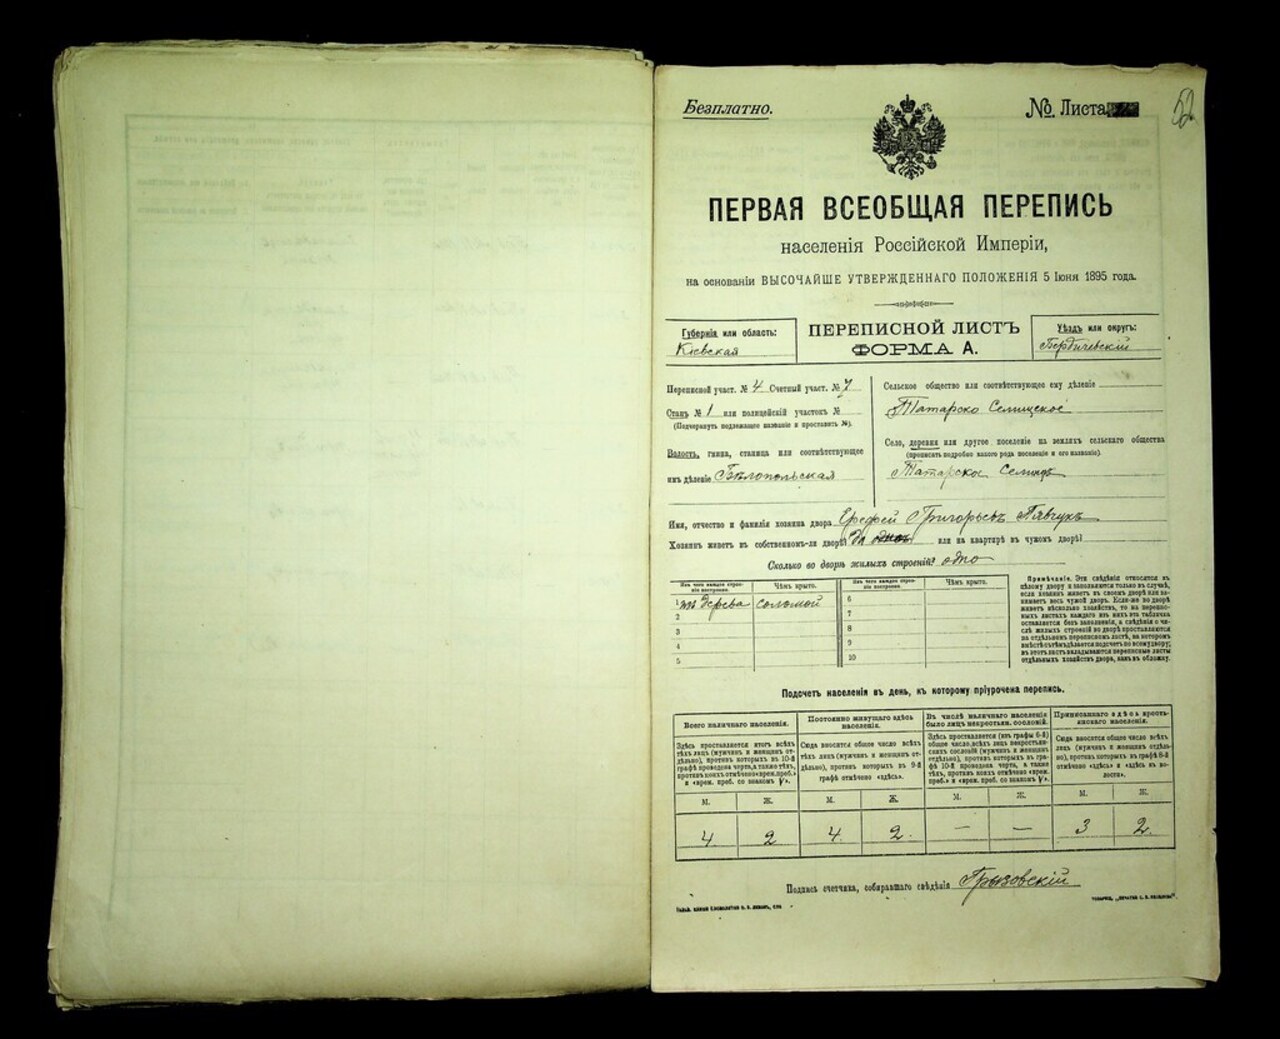 Безплатно.
№ Листа
52
ПЕРВАЯ ВСЕОБЩАЯ ПЕРЕПИСЬ
населенія Россійской Имперіи,
на основаніи ВЫСОЧАЙШЕ УТВЕРЖДЕННАГО ПОЛОЖЕНІЯ 5 Іюня 1895 года.
Губернія или область:
Кіевская
ПЕРЕПИСНОЙ ЛИСТЪ
ФОРМА А.
Уѣздъ или округъ:
Бердичевскій
Переписной участ. № 4 Счетный участ. № 7
Станъ № 1 или полицейскій участокъ №
(Подчеркнуть подлежащее названіе и проставить №).
Волость, гмина, станица или соотвѣтствующее
имъ дѣленіе Бѣлопольская
Сельское общество или соотвѣтствующее ему дѣленіе
Татарско Селищское
Село, деревня или другое поселеніе на земляхъ сельскаго общества
(прописать подробно какого рода поселеніе и его названіе).
Татарское Селище
Имя, отчество и фамилія хозяина двора Ерофей Григорьевъ Павчукъ
Хозяинъ живетъ въ собственномъ-ли дворѣ? Да или на квартирѣ въ чужомъ дворѣ?
Сколько во дворѣ жилыхъ строеній? одно
Изъ чего каждое строеніе построено.
Чѣмъ крыто.
Изъ чего каждое строеніе построено.
Чѣмъ крыто.
1 изъ дерева соломой
2
3
4
5
6
7
8
9
10
Примѣчаніе. Эти свѣдѣнія относятся къ
цѣлому двору и заполняются только въ случаѣ,
если хозяинъ живетъ въ своемъ дворѣ или занимаетъ
весь чужой дворъ. Если-же во дворѣ
живетъ нѣсколько хозяйствъ, то на переписныхъ
листахъ каждаго изъ нихъ эта табличка
оставляется безъ заполненія, а свѣдѣнія о числѣ
жилыхъ строеній во дворѣ проставляются
на отдѣльномъ переписномъ листѣ, на которомъ
вмѣстѣ съ тѣмъ дѣлается подсчетъ по всему двору;
въ этотъ листъ вкладываются переписные листы
отдѣльныхъ хозяйствъ двора, какъ въ обложку.
Подсчетъ населенія въ день, къ которому пріурочена перепись.
Всего наличнаго населенія.
Здѣсь проставляется итогъ всѣхъ
тѣхъ лицъ (мужчинъ и женщинъ отдѣльно),
противъ которыхъ въ 10-й
графѣ проведена черта, а также тѣхъ,
противъ коихъ отмѣчено «врем. преб.»
и «врем. преб. со знакомъ V».
Постоянно живущаго здѣсь
населенія.
Сюда вносится общее число всѣхъ
тѣхъ лицъ (мужчинъ и женщинъ отдѣльно),
противъ которыхъ въ 9-й
графѣ отмѣчено «здѣсь».
Въ числѣ наличнаго населенія
было лицъ некрестьян. сословій.
Здѣсь проставляется (изъ графы 6-й)
общее число всѣхъ лицъ некрестьянскихъ
сословій (мужчинъ и женщинъ
отдѣльно), противъ которыхъ въ графѣ
10-й проведена черта, а также
тѣхъ, противъ коихъ отмѣчено «врем.
преб.» и «врем. преб. со знакомъ V».
Приписаннаго здѣсь крестьянскаго
населенія.
Сюда вносится общее число всѣхъ
лицъ (мужчинъ и женщинъ отдѣльно),
противъ которыхъ въ графѣ 8-й
отмѣчено «здѣсь» и «здѣсь въ волости».
М. Ж. М. Ж. М. Ж. М. Ж.
4 2 4 2 — — 3 2
Подпись счетчика, собиравшаго свѣдѣнія Грызовскій